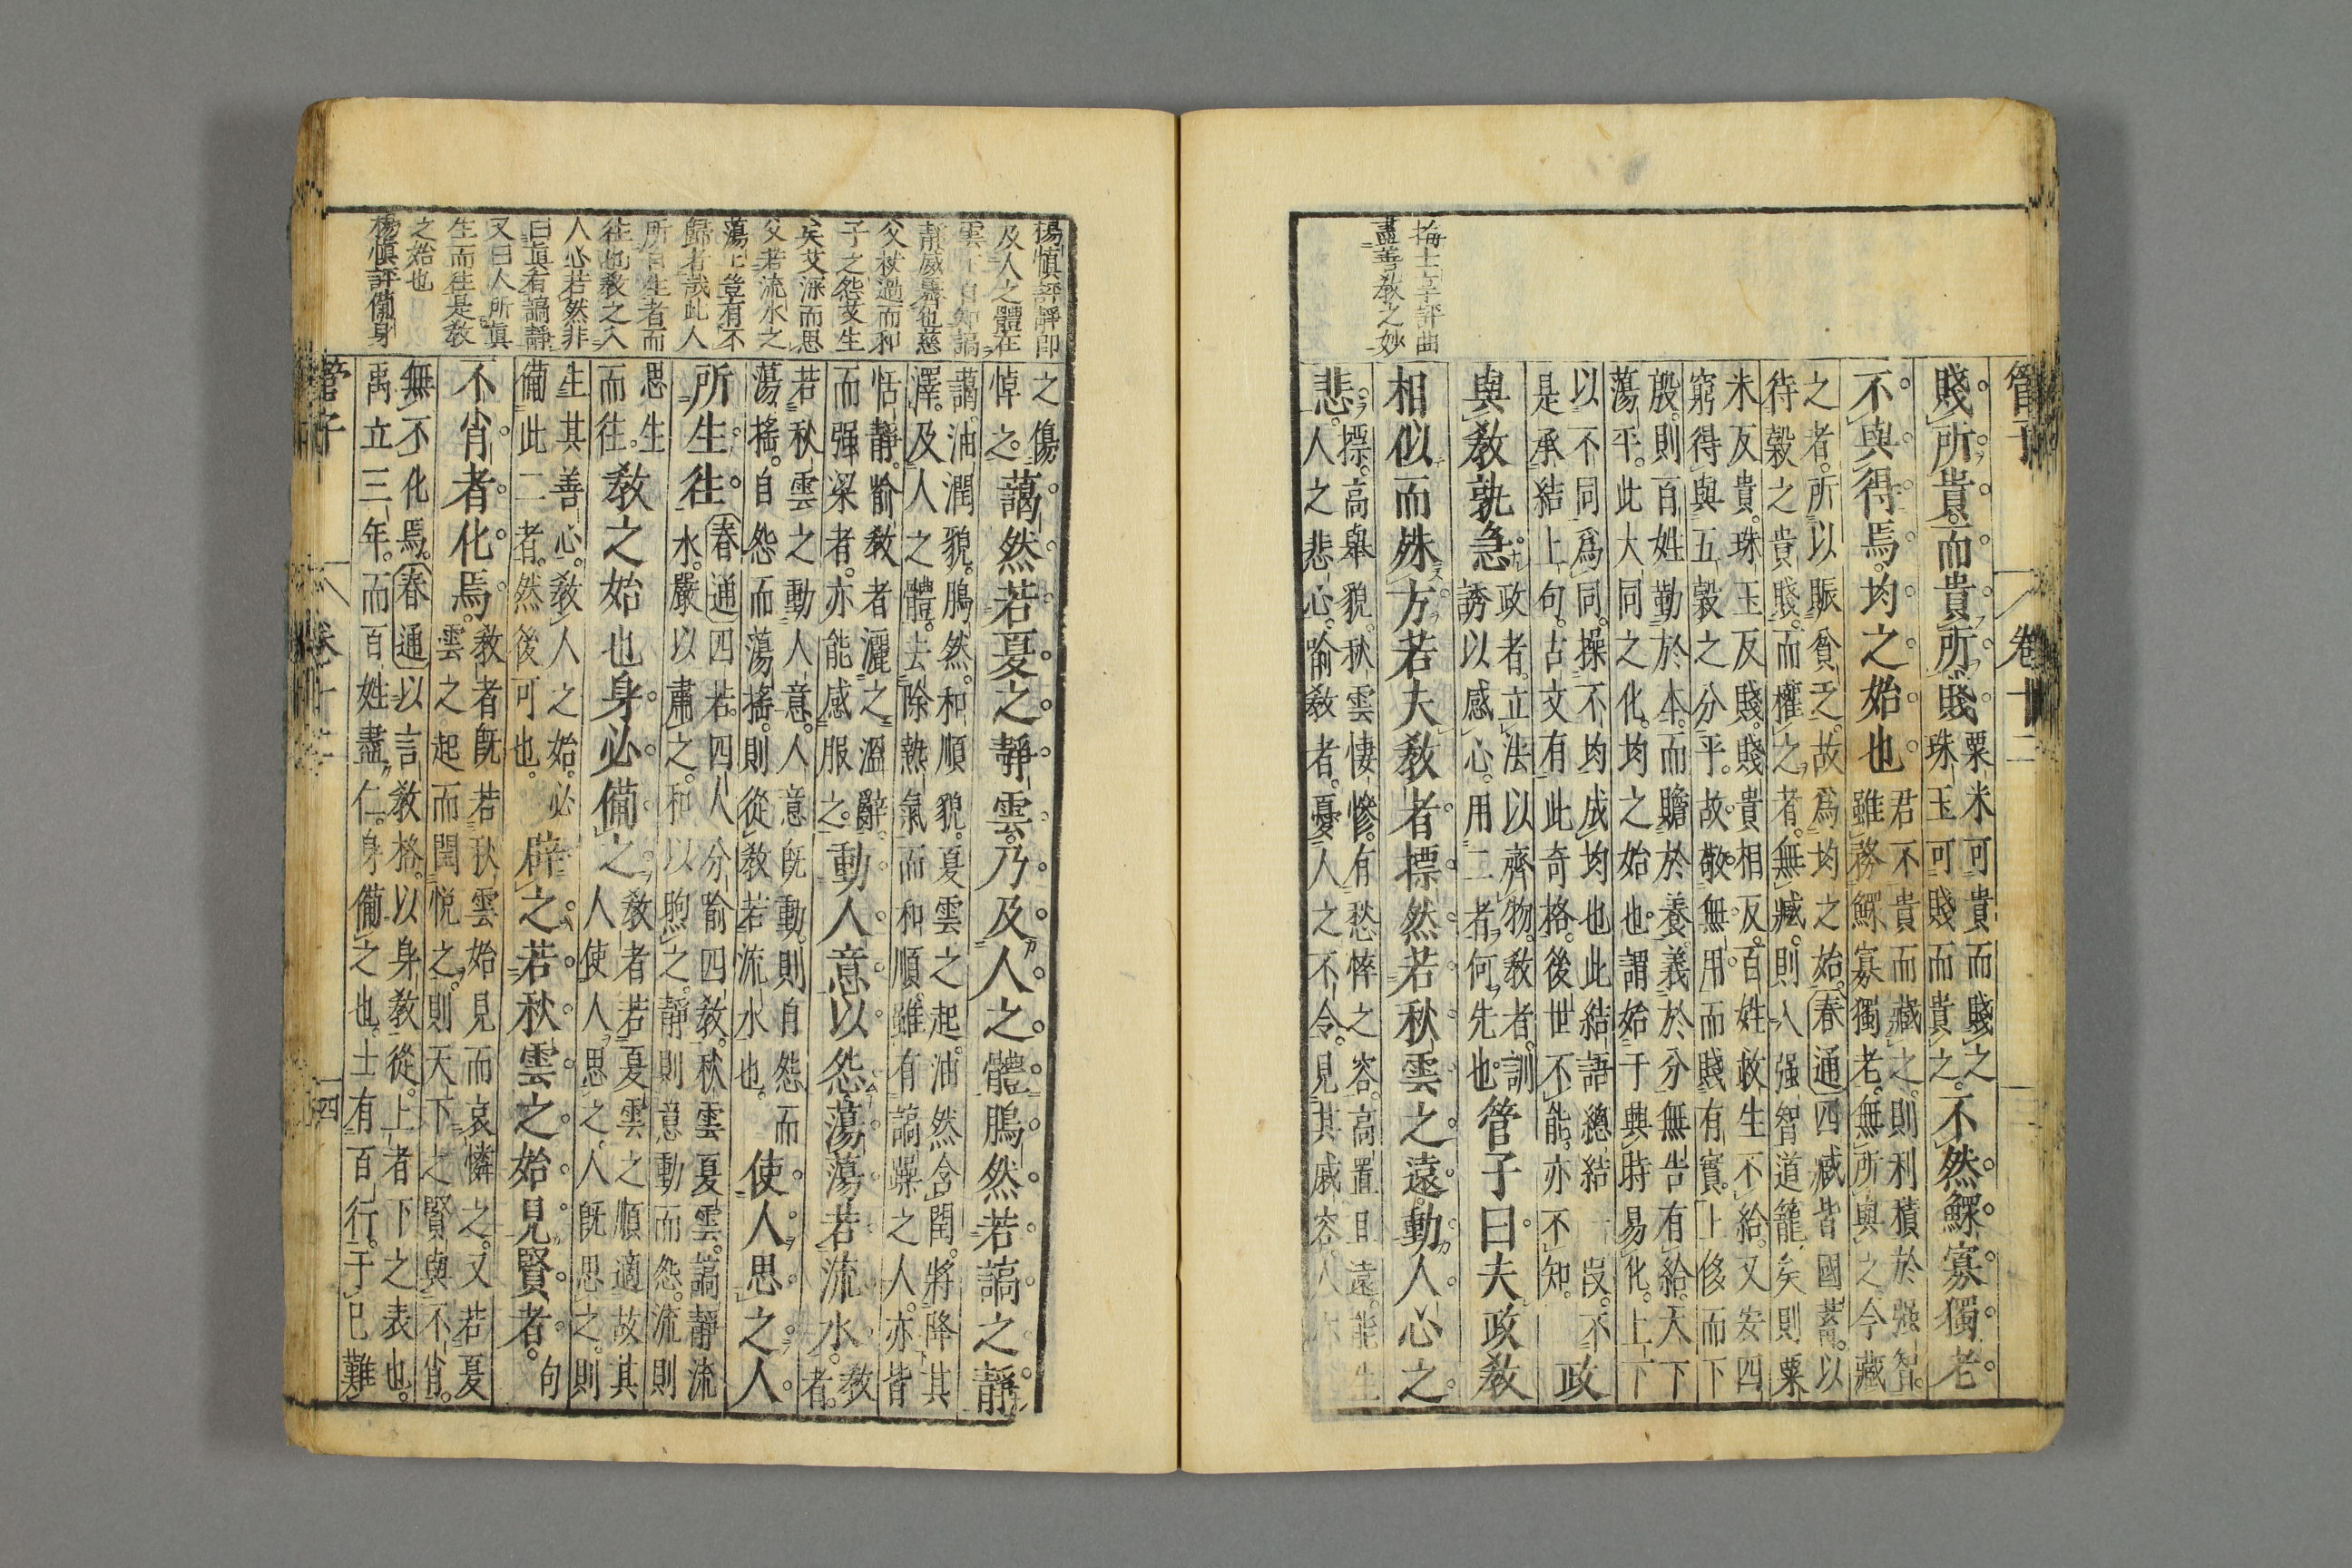 管子
卷十二
賤所貴而貴所賤
粟米可貴而賤之
珠玉可賤而貴之
不然鰥寡獨老
不與得焉均之始也
君不貴而藏之則利積於强智
雖務鰥寡獨老無所與之令藏
之者所以賑貧乏故爲均之始春通四臧皆國蓄以
待榖之貴賤而權之者無臧則入强智道籠矣則粟
米反貴珠玉反賤賤貴相反百姓故生不給又安四
窮得與五榖之分乎故敬無用而賤有實上侈而下
殷則百姓勤於本而贍於養義於分無告有給天下
蕩平此大同之化均之始也謂始于典時易化上下
以不同爲同操不均成均也此結語總結
是承結上句古文有此奇格後世不能亦不知
政
與教孰急
政者立法以齊物教者訓
誘以感心用二者何先也
管子曰夫政教
相似而殊方若夫教者摽然若秋雲之遠動人心之
悲
摽高舉貌秋雲悽慘有愁悴之容高置且遠能生
人之悲心喻教者憂人之不令見其戚容人
梅士享評曲
盡善教之妙
之傷
悼之
藹然若夏之靜雲乃及人之體鵰然若謞之靜
藹油潤貌鵰然和順貌夏雲之起油然含閏將降其
澤及人之體去除熱氣而和順雖有謞躁之人亦皆
恬靜喻教者灑之溫辭
而强梁者亦能感服之
動人意以怨蕩蕩若流水
教
者
若秋雲之動人意人意旣動則自怨而
蕩搖自怨而蕩搖則從教若流水也
使人思之人
所生往
春通四若四人分喻四教秋雲夏雲謞靜流
水嚴以肅之和以煦之靜則意動而怨流則
思生
而往
教之始也身必備之
教者若夏雲之順適故其
人使人思之人旣思之則
生其善心教人之始必
備此二者然後可也
辟之若秋雲之始見賢者
句
不肖者化焉
教者旣若秋雲始見而哀憐之又若夏
雲之起而閏悅之則天下之賢與不肖
無不化焉春通以言教格以身教從上者下之表也
禹立三年而百姓盡仁身備之也士有百行于已難
楊慎評靜卽
及人之體在
父杖過而和
子之怨艾生
矣艾深而思
父若流水之
歸者哉此人
所自生者而
往也教之入
人必若然非
曰眞看謞靜
又曰人所眞
生而往是教
之始也
楊慎評備身
管子
卷十二
四